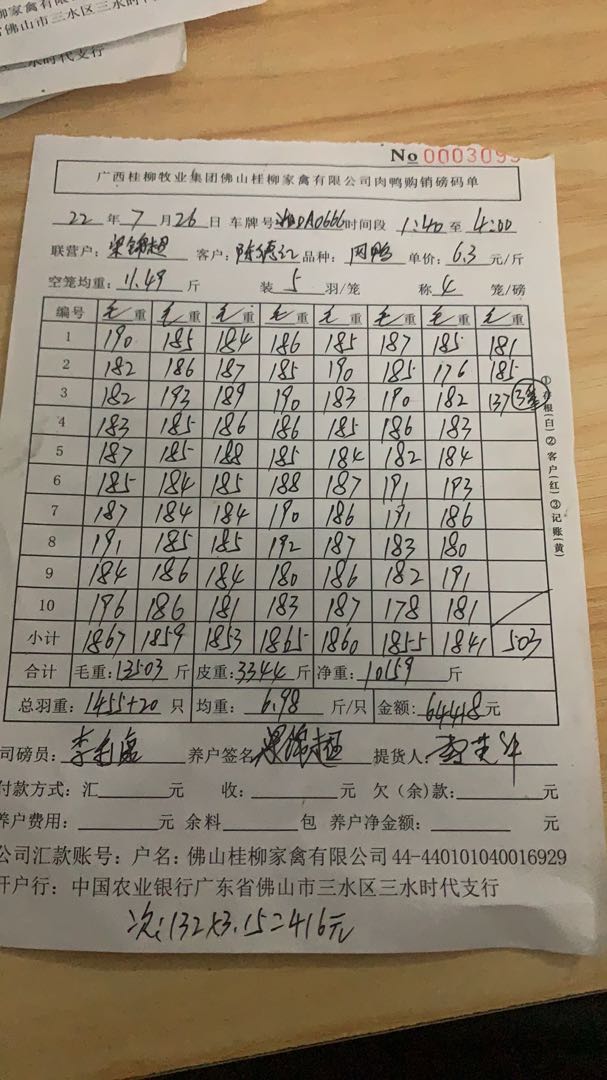 柳家禽有
省佛山市三水区三水时代支行
三水时代支行
No 0003095
广西桂柳牧业集团佛山桂柳家禽有限公司肉鸭购销磅码单
22 年 7 月 26 日 车牌号 DA0666 时间段 1:40 至 4:00
联营户: 梁锦超 客户: 陈德江 品种: 网鸭 单价: 6.3 元/斤
空笼均重: 11.49 斤 装 5 羽/笼 称 4 笼/磅
编号 毛重 毛重 毛重 毛重 毛重 毛重 毛重 毛重
1 190 185 184 186 185 187 185 181
2 182 186 187 185 190 185 176 185
3 182 193 189 190 183 190 182 137 3笼
4 183 185 186 186 185 186 183
5 187 185 188 185 184 182 184
6 185 184 185 188 187 191 193
7 187 184 184 190 186 191 186
8 191 185 185 192 187 183 180
9 184 186 184 180 186 182 191
10 196 186 181 183 187 178 181
小计 1867 1859 1853 1865 1860 1855 1841 503
合计 毛重: 13503 斤 皮重: 3344 斤 净重: 10159 斤
总羽重: 1455+20 只 均重: 6.98 斤/只 金额: 64418 元
司磅员: 养户签名 梁锦超 提货人:
付款方式: 汇 元 收: 元 欠(余)款: 元
养户费用: 元 余料 包 养户净金额: 元
公司汇款账号: 户名: 佛山桂柳家禽有限公司 44-440101040016929
开户行: 中国农业银行广东省佛山市三水区三水时代支行
次: 132×3.15=416元
①存根(白)②客户(红)③记账(黄)